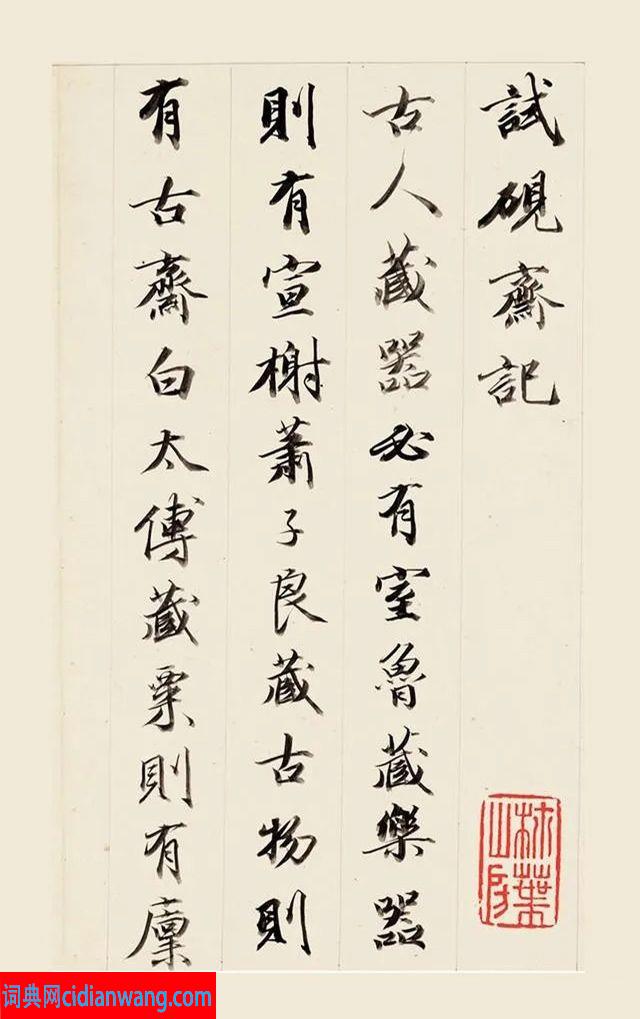 試硯齋記
古人藏器必有室魯藏樂器
則有宣榭蕭子良藏古物則
有古齋白太傅藏粟則有廩
词典网cidianwang.com